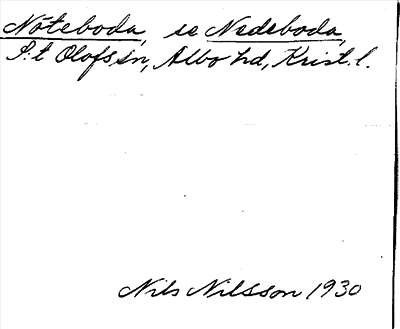 Nöteboda, se Nedeboda,
S:t Olofs sn, Albo hd, Krist. l.
Nils Nilsson 1930